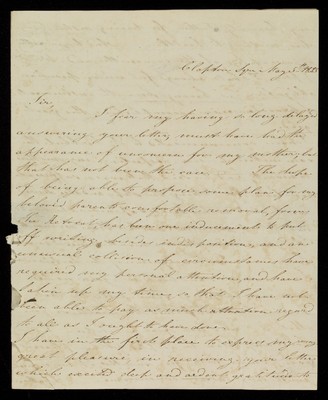 Clapton Sqre May 5th
Sir,
I fear my having so long delayed
answering your letter, must have had the
appearance of unconcern for my mother, but
that has not been the case. The hope
of being able to propose some plan for my
beloved parent's comfortable removal, from
The Retreat, has been one inducement to put
off writing, besides indisposition, and an
unusual collision of circumstances have
required my personal attention, and have
taken up my time, so that I have not
been able to pay as much attention & regard
to all as I ought to have done.
I have in the first place to express my very
great pleasure, in receiving your letter,
which excited deep and ardent gratitude to